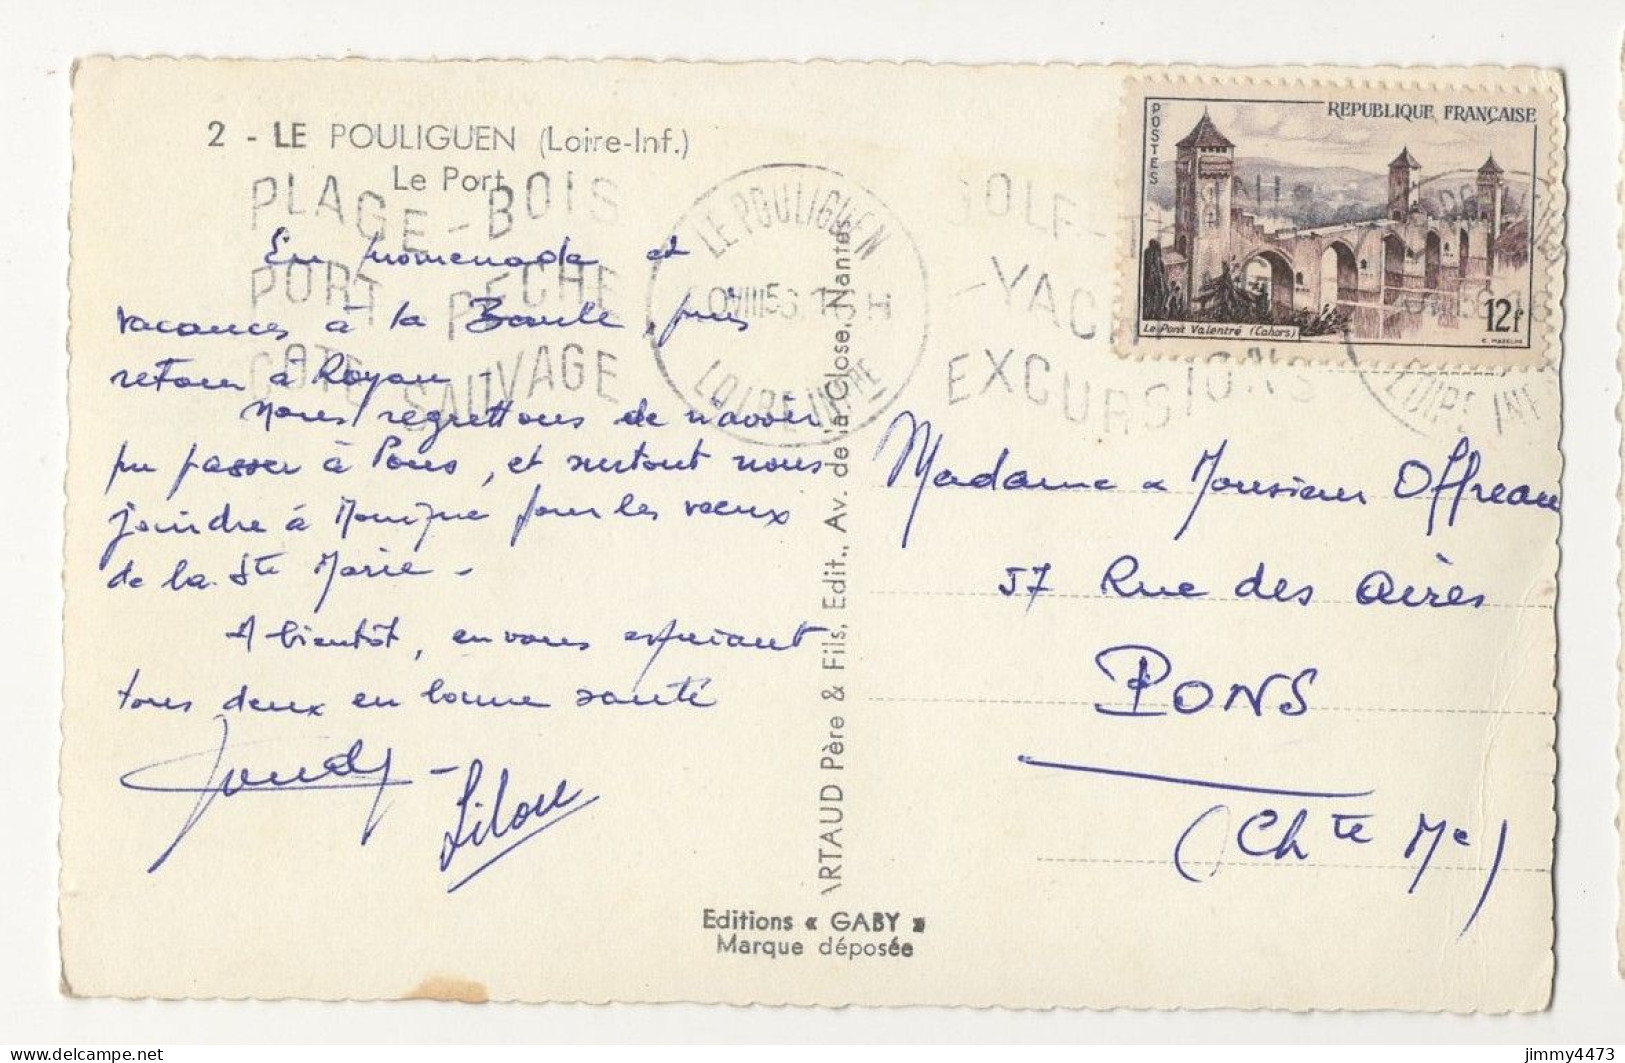 2 - LE POULIGUEN (Loire-Inf.)
Le Port
PLAGE-BOIS
PORT PECHE
COTE SAUVAGE
LE POULIGUEN
LOIRE INFRE
GOLF-T
-YAC
EXCURSIONS
REPUBLIQUE FRANÇAISE
POSTES
Le Pont Valentré (Cahors)
12f
En promenade et
vacances à la Baule, puis
retour à Royan -
Nous regrettons de n'avoir
pu passer à Pons, et surtout nous
joindre à Monique pour les vœux
de la Ste Marie -
A bientôt, en vous espérant
tous deux en bonne santé
Lilou
Madame & Monsieur Offreau
57 Rue des Aires
PONS
(Chte Me)
ARTAUD Père & Fils, Edit., Av. de la Close, Nantes
Editions « GABY »
Marque déposée
jimmy4473